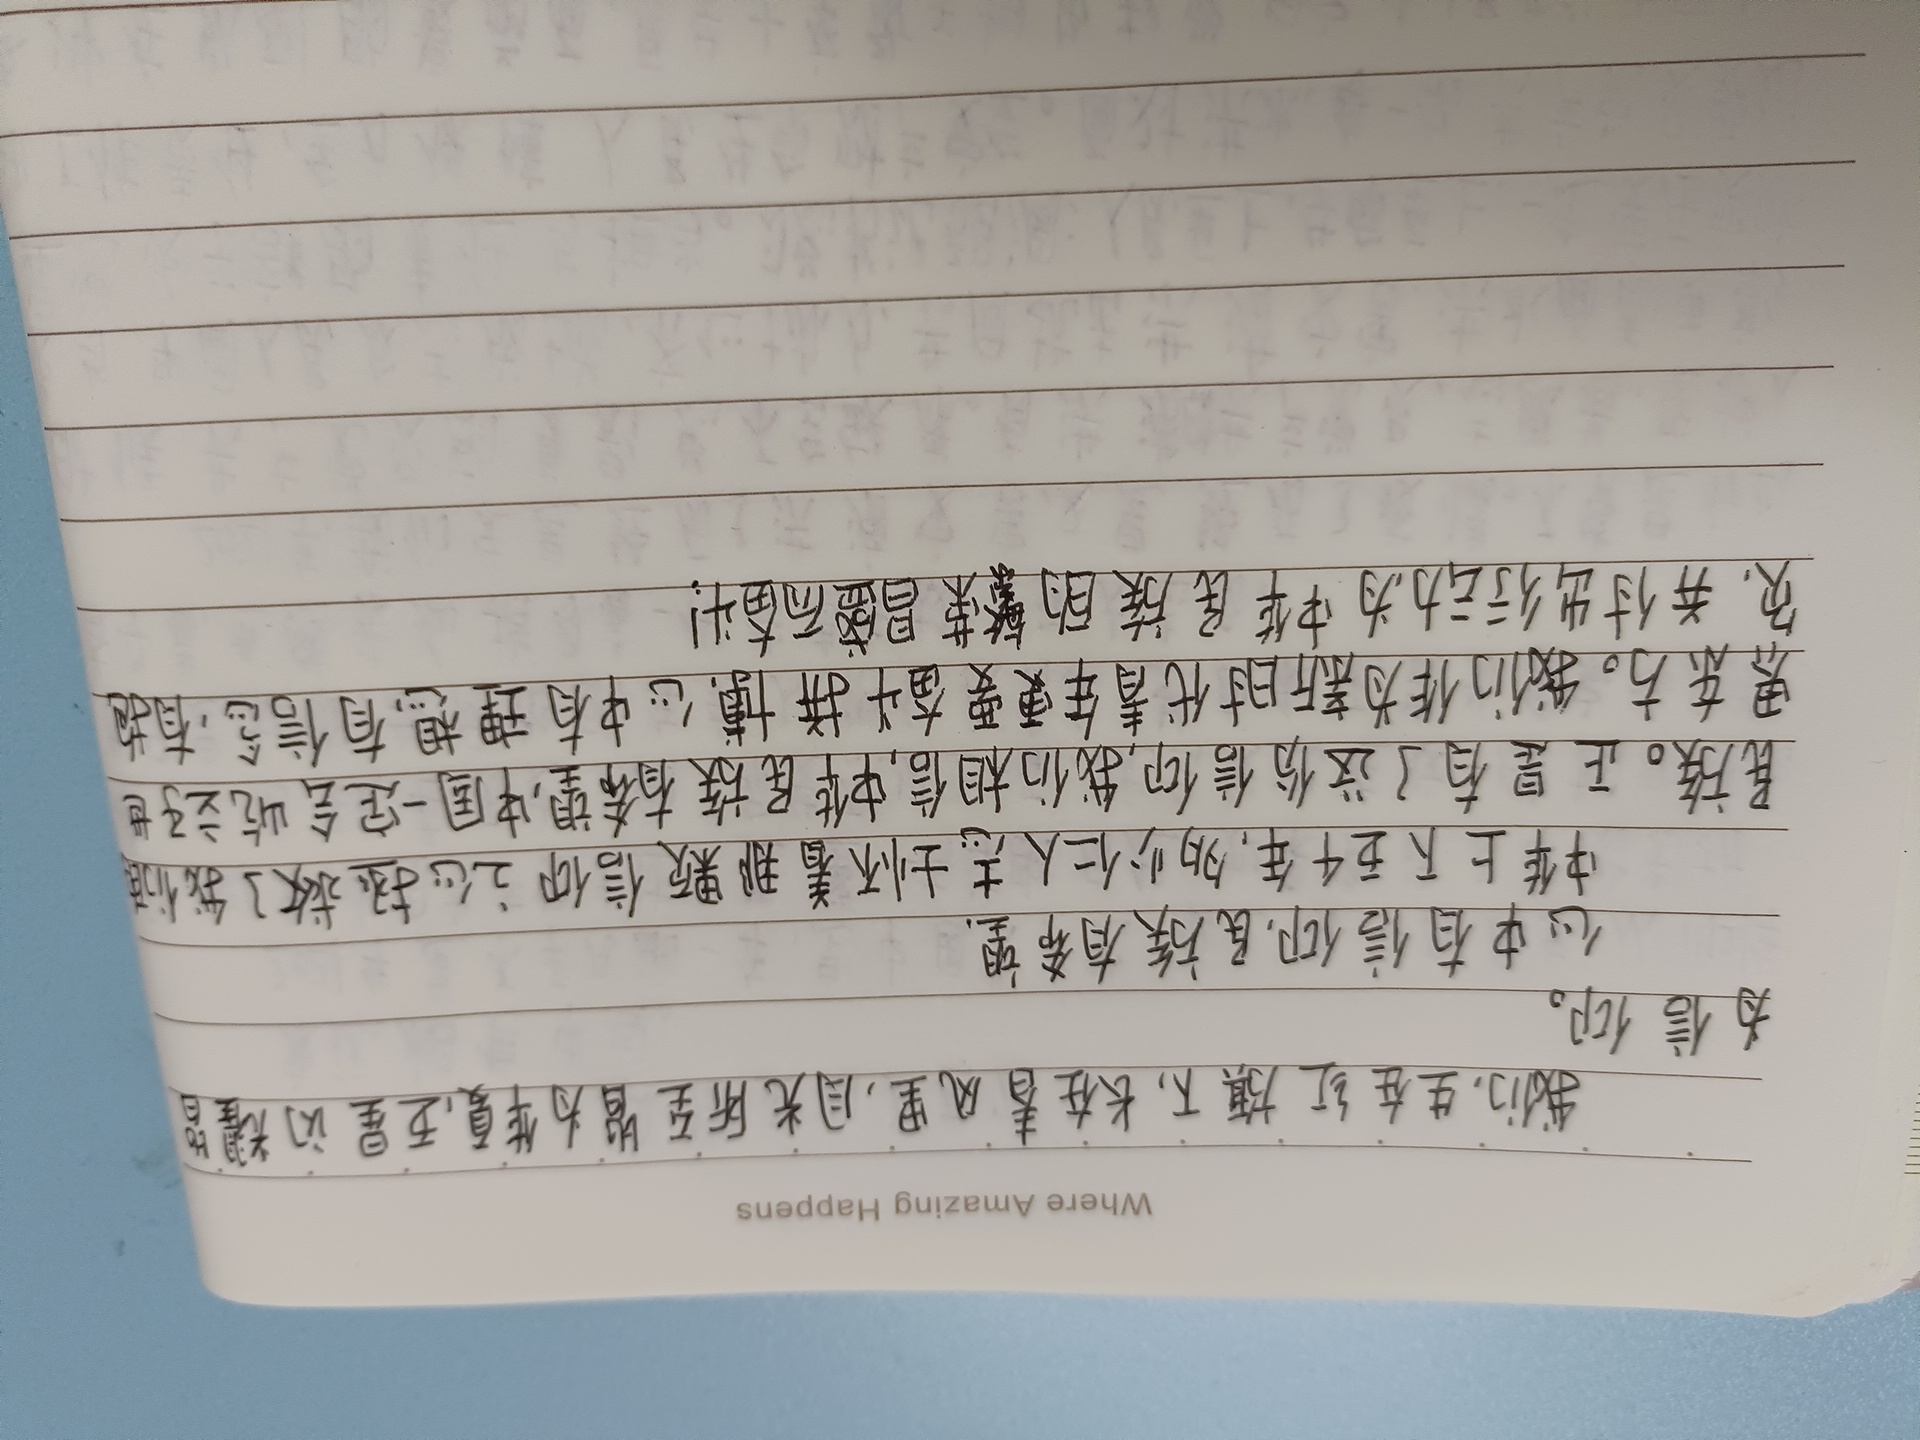 Where Amazing Happens
我们,生在红旗下,长在春风里,目光所至皆为华夏,五星闪耀皆
为信仰。
心中有信仰,民族有希望.
中华上下五千年,多少仁人志士怀着那颗信仰之心拯救了我们
民族。正是有了这份信仰,我们相信,中华民族有希望,中国一定会屹立于世
界东方。我们作为新时代青年更要奋斗拼搏,心中有理想,有信念,有抱
负,并付出行动,为中华民族的繁荣昌盛而奋斗!